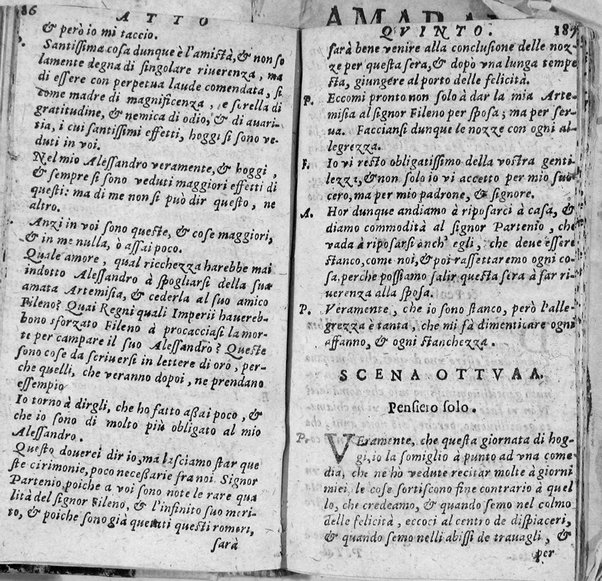 86 ATTO
& però io mi taccio.
Santissima cosa dunque è l'amistà, & non so
lamente degna di singolare riuerenza, ma
di essere con perpetua laude comendata, si
come madre di magnificenza, e sorella di
gratitudine, & nemica di odio, & di auari-
tia, i cui santissimi effetti, hoggi si sono ve-
duti in voi.
Nel mio Alessandro veramente, & hoggi,
& sempre si sono veduti maggiori effetti di
questi: ma di me non si può dir questo, ne
altro.
Anzi in voi sono queste, & cose maggiori,
& in me nulla, ò assai poco.
Quale amore, qual ricchezza harebbe mai
indotto Alessandro à spogliarsi della sua
amata Artemisia, & cederla al suo amico
Fileno? Quai Regni quali Imperii hauereb-
bono sforzato Fileno à procacciasi la mor-
te per campare il suo Alessandro? Queste
sono cose da scriuersi in lettere di oro, per-
che quelli, che veranno dopoi, ne prendano
essempio
Io torno à dirgli, che ho fatto assai poco, &
che io sono di molto più obligato al mio
Alessandro.
Questo douerei dir io, ma lasciamo star que
ste cirimonie, poco necessarie fra noi. Signor
Partenio, poiche a voi sono note le rare qua
lità del signor Fileno, & l'infinito suo meri-
to, & poiche sono già questi romori,
sarà
AMARA
QVINTO. 187
sarà bene venire alla conclusione delle noz-
ze per questa sera, & dopò vna lunga tempe
sta, giungere al porto delle felicità.
P. Eccomi pronto non solo à dar la mia Arte-
misia al signor Fileno per sposa; ma per ser-
ua. Faccianst dunque le nozze con ogni al-
legrezza.
F. Io vi resto obligatissimo della vostra genti-
lezza, & non solo io vi accetto per mio suo
cero, ma per mio padrone, & signore.
A. Hor dunque andiamo à riposarci à casa, &
diamo commodità al signor Partenio, che
vada à riposarsi anch' egli, che deue essere
stanco, come noi, & poi rassettaremo ogni co
sa, perche possiamo salir questa sera à far ri-
uerenza alla sposa.
P. Veramente, che io sono stanco, però l'alle-
grezza è tanta, che mi fà dimenticare ogni
affanno, & ogni stanchezza.
SCENA OTTVAA.
Pensiero solo.
Pe. VEramente, che questa giornata di hog-
gi, io la somiglio à punto ad vna come
dia, che ne hò vedute recitar molte à giorni
miei, le cose sortiscono fine contrario à quel
lo, che credeamo, & quando semo nel colmo
delle felicità, eccoci al centro de dispiaceri,
& quando semo nelli abissi de trauagli, &
per